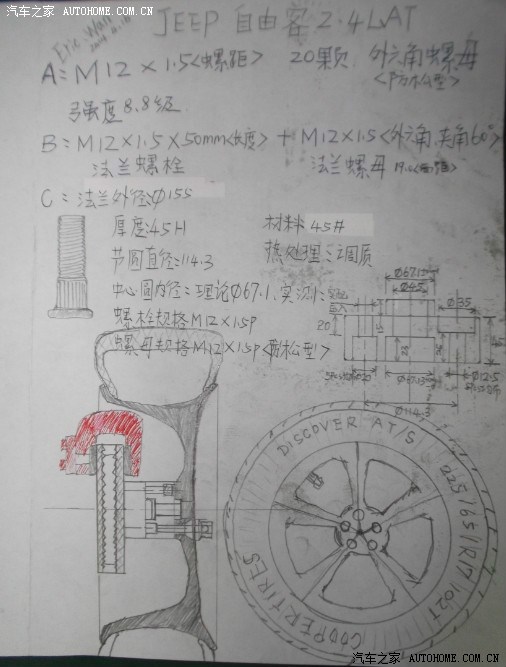 汽车之家 AUTOHOME.COM.CN
Eric Wall
JEEP 自由客 2.4L AT
A = M12 × 1.5<螺距> 20颗 外六角螺母
<防松型>
强度 8.8级
B = M12×1.5×50mm<长度> + M12×1.5<外六角,夹角60°>
法兰螺栓 法兰螺母
C = 法兰外径:Φ155
厚度:45H 材料:45#
节圆直径:114.3 热处理:调质
中心圆内径:理论Φ67.1,实测
螺栓规格M12×1.5P
螺母规格M12×1.5P<防松型>
Φ45
Φ35
20
Φ20
Φ12.5
Φ114.3
DISCOVER AT/S
225/65/R17 102T
COOPERTIRES
汽车之家 AUTOHOME.COM.CN